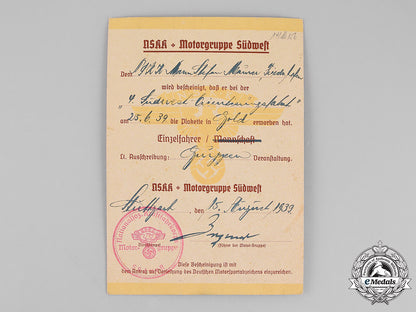 NSKK + Motorgruppe Südwest
Dem NSKK Mann Stefan Maurer
wird bescheinigt, daß er bei der
"4. Südwest Orientierungsfahrt"
am 25.6.39 die Plakette in Gold erworben hat.
Einzelfahrer / Mannschaft
Lt. Ausschreibung: Gruppen Veranstaltung.
NSKK + Motorgruppe Südwest
Stuttgart, den 15. August 1939
(Führer der Motor-Gruppe)
Diese Bescheinigung ist mit
dem Antrag auf Verleihung des Deutschen Motorsportabzeichens einzureichen.